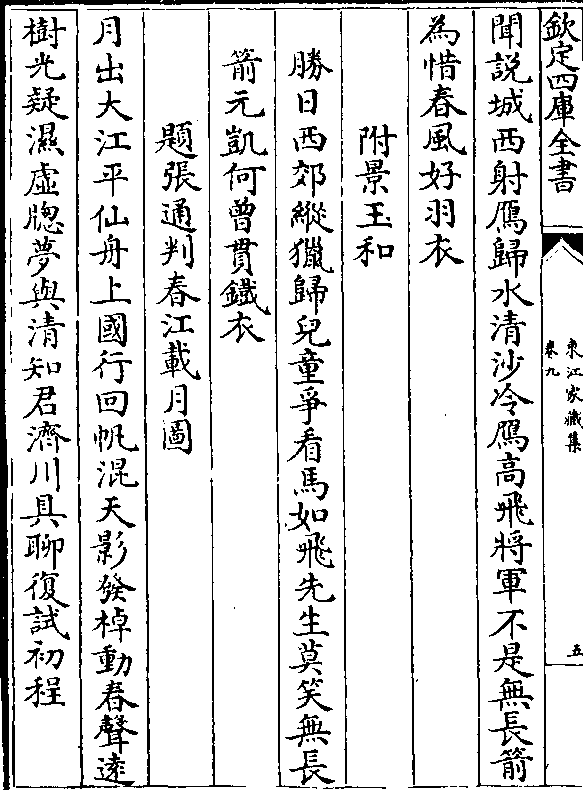 欽定四庫全書
東江家藏集
卷九
五
聞說城西射鴈歸水清沙冷鴈高飛將軍不是無長箭
為惜春風好羽衣
附景玉和
勝日西郊縱獵歸兒童爭看馬如飛先生莫笑無長
箭元凱何曾貫鐵衣
題張通判春江載月圖
月出大江平仙舟上國行回帆混天影發棹動春聲遠
樹光疑濕虛牕夢與清知君濟川具聊復試初程